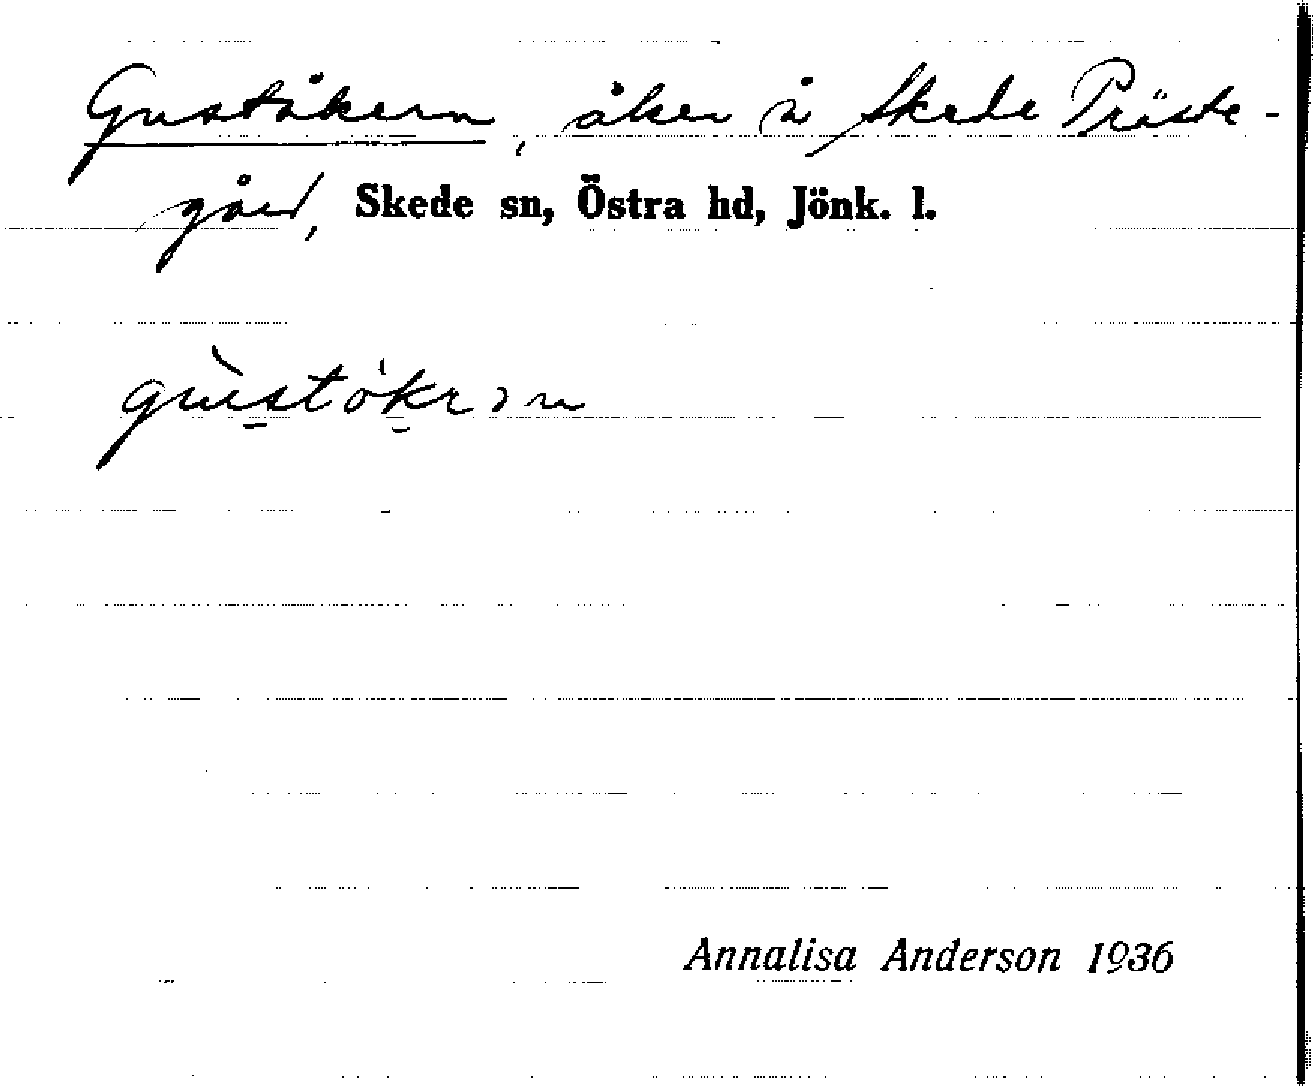 Guståkern, åker å Skede Präste-
gård, Skede sn, Östra hd, Jönk. l.
gùstòkrən
Annalisa Anderson 1936